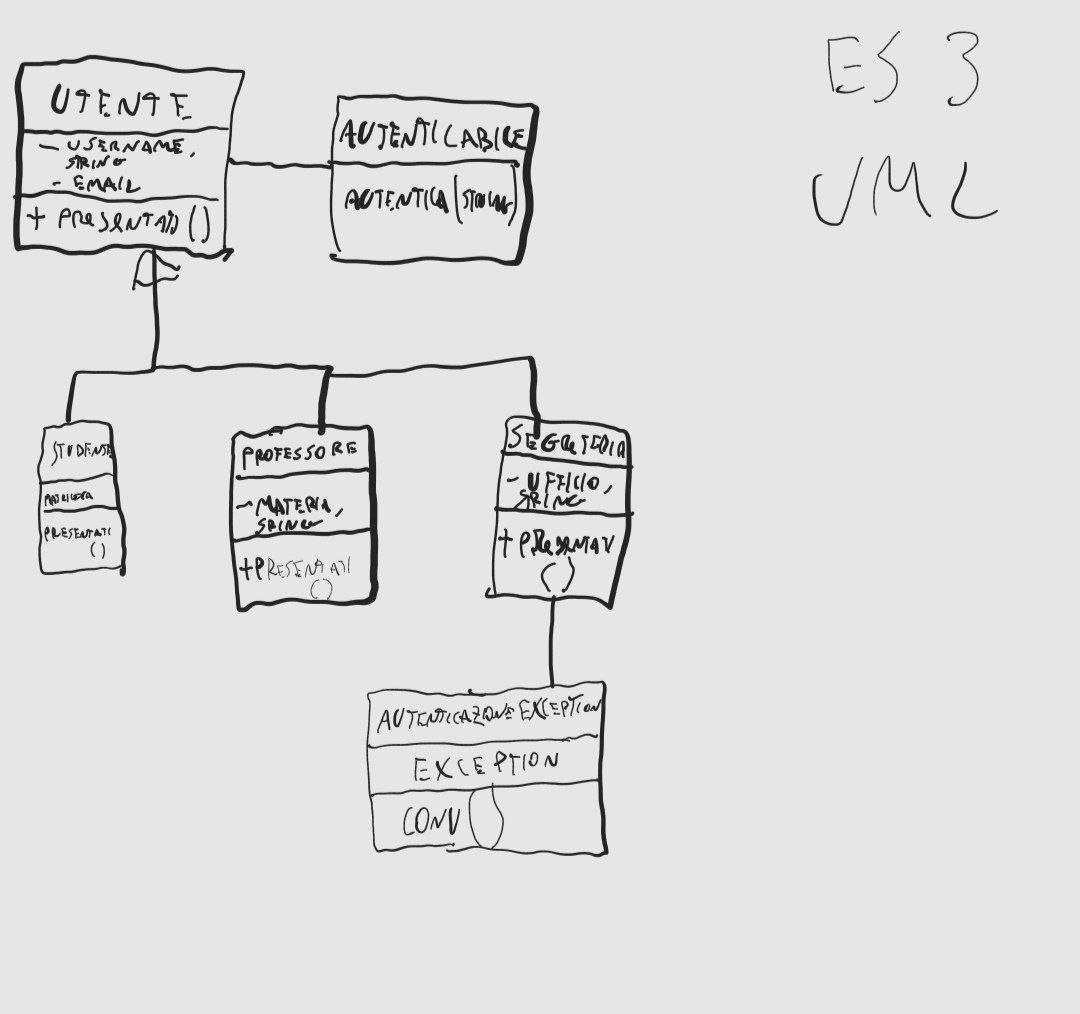 ES 3
UML
UTENTE
- USERNAME,
STRING
- EMAIL
+ PRESENTATI ()
AUTENTICABILE
AUTENTICA (STRING)
STUDENTE
MATRICOLA
PRESENTATI
()
PROFESSORE
- MATERIA,
SRING
+ PRESENTATI
()
SEGRETERIA
- UFFICIO,
SRING
+ PRESENTATI
()
AUTENTICAZIONE EXCEPTION
EXCEPTION
CONV ()